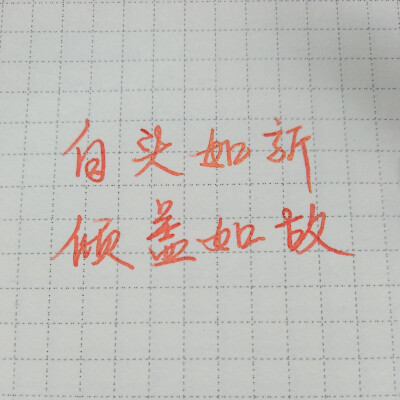 白头如新
倾盖如故